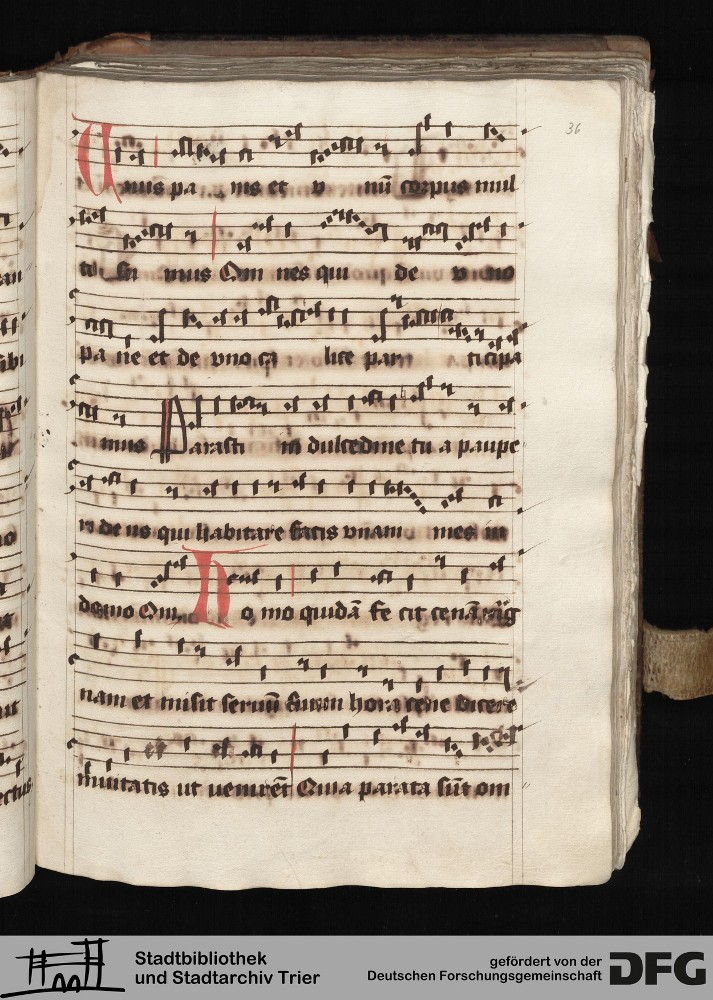 36
Unus panis et unū corpus mul
ti sumus Omnes qui de uno
pane et de vno calice participa
mus Parasti in dulcedine tua paupe
ri deus qui habitare facis vnanimes in
domo Om Homo quidā fecit cenā mag
nam et misit seruū suum hora cene dicere
inuitatis ut venirēt Quia parata sūt om
Stadtbibliothek
und Stadtarchiv Trier
gefördert von der
Deutschen Forschungsgemeinschaft
DFG